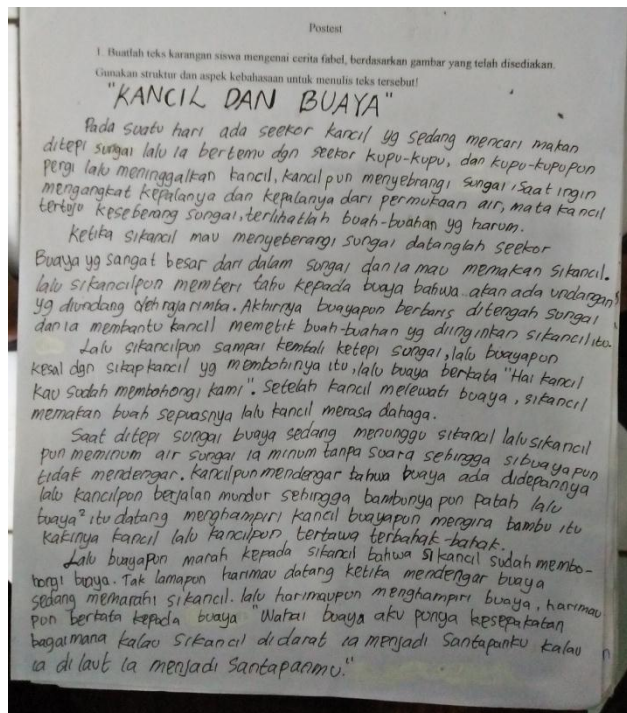 Postest
1 Buatlah teks karangan siswa mengenai cerita fabel, berdasarkan gambar yang telah disediakan.
Gunakan struktur dan aspek kebahasaan untuk menulis teks tersebut!
"KANCIL DAN BUAYA"
Pada suatu hari ada seekor kancil yg sedang mencari makan
ditepi sungai lalu ia bertemu dgn seekor kupu-kupu, dan kupu-kupupun
pergi lalu meninggalkan kancil, kancilpun menyebrangi sungai, saat ingin
mengangkat kepalanya dan kepalanya dari permukaan air, mata kancil
tertuju keseberang sungai, terlihatlah buah-buahan yg harum.
Ketika sikancil mau menyeberangi sungai datanglah seekor
Buaya yg sangat besar dari dalam sungai dan ia mau memakan sikancil.
lalu sikancilpun memberi tahu kepada buaya bahwa akan ada undangan
yg diundang oleh raja rimba. Akhirnya buayapun berbaris ditengah sungai
dan ia membantu kancil memetik buah-buahan yg diinginkan sikancil itu.
Lalu sikancilpun sampai kembali ketepi sungai, lalu buayapun
kesal dgn sikap kancil yg membohinya itu, lalu buaya berkata "Hai kancil
kau sudah membohongi kami". Setelah kancil melewati buaya, sikancil
memakan buah sepuasnya lalu kancil merasa dahaga.
Saat ditepi sungai buaya sedang menunggu sikancil lalu sikancil
pun meminum air sungai ia minum tanpa suara sehingga sibuaya pun
tidak mendengar. kancilpun mendengar bahwa buaya ada didepannya
lalu kancilpun berjalan mundur sehingga bambunya pun patah lalu
buaya² itu datang menghampiri kancil buayapun mengira bambu itu
kakinya kancil lalu kancilpun tertawa terbahak-bahak.
Lalu buayapun marah kepada sikancil bahwa sikancil sudah membo-
hongi buaya. Tak lamapun harimau datang ketika mendengar buaya
sedang memarahi sikancil. lalu harimaupun menghampiri buaya, harimau
pun berkata kepada buaya "Wahai buaya aku punya kesepakatan
bagaimana kalau Sikancil didarat ia menjadi Santapanku kalau
ia di laut ia menjadi Santapanmu."